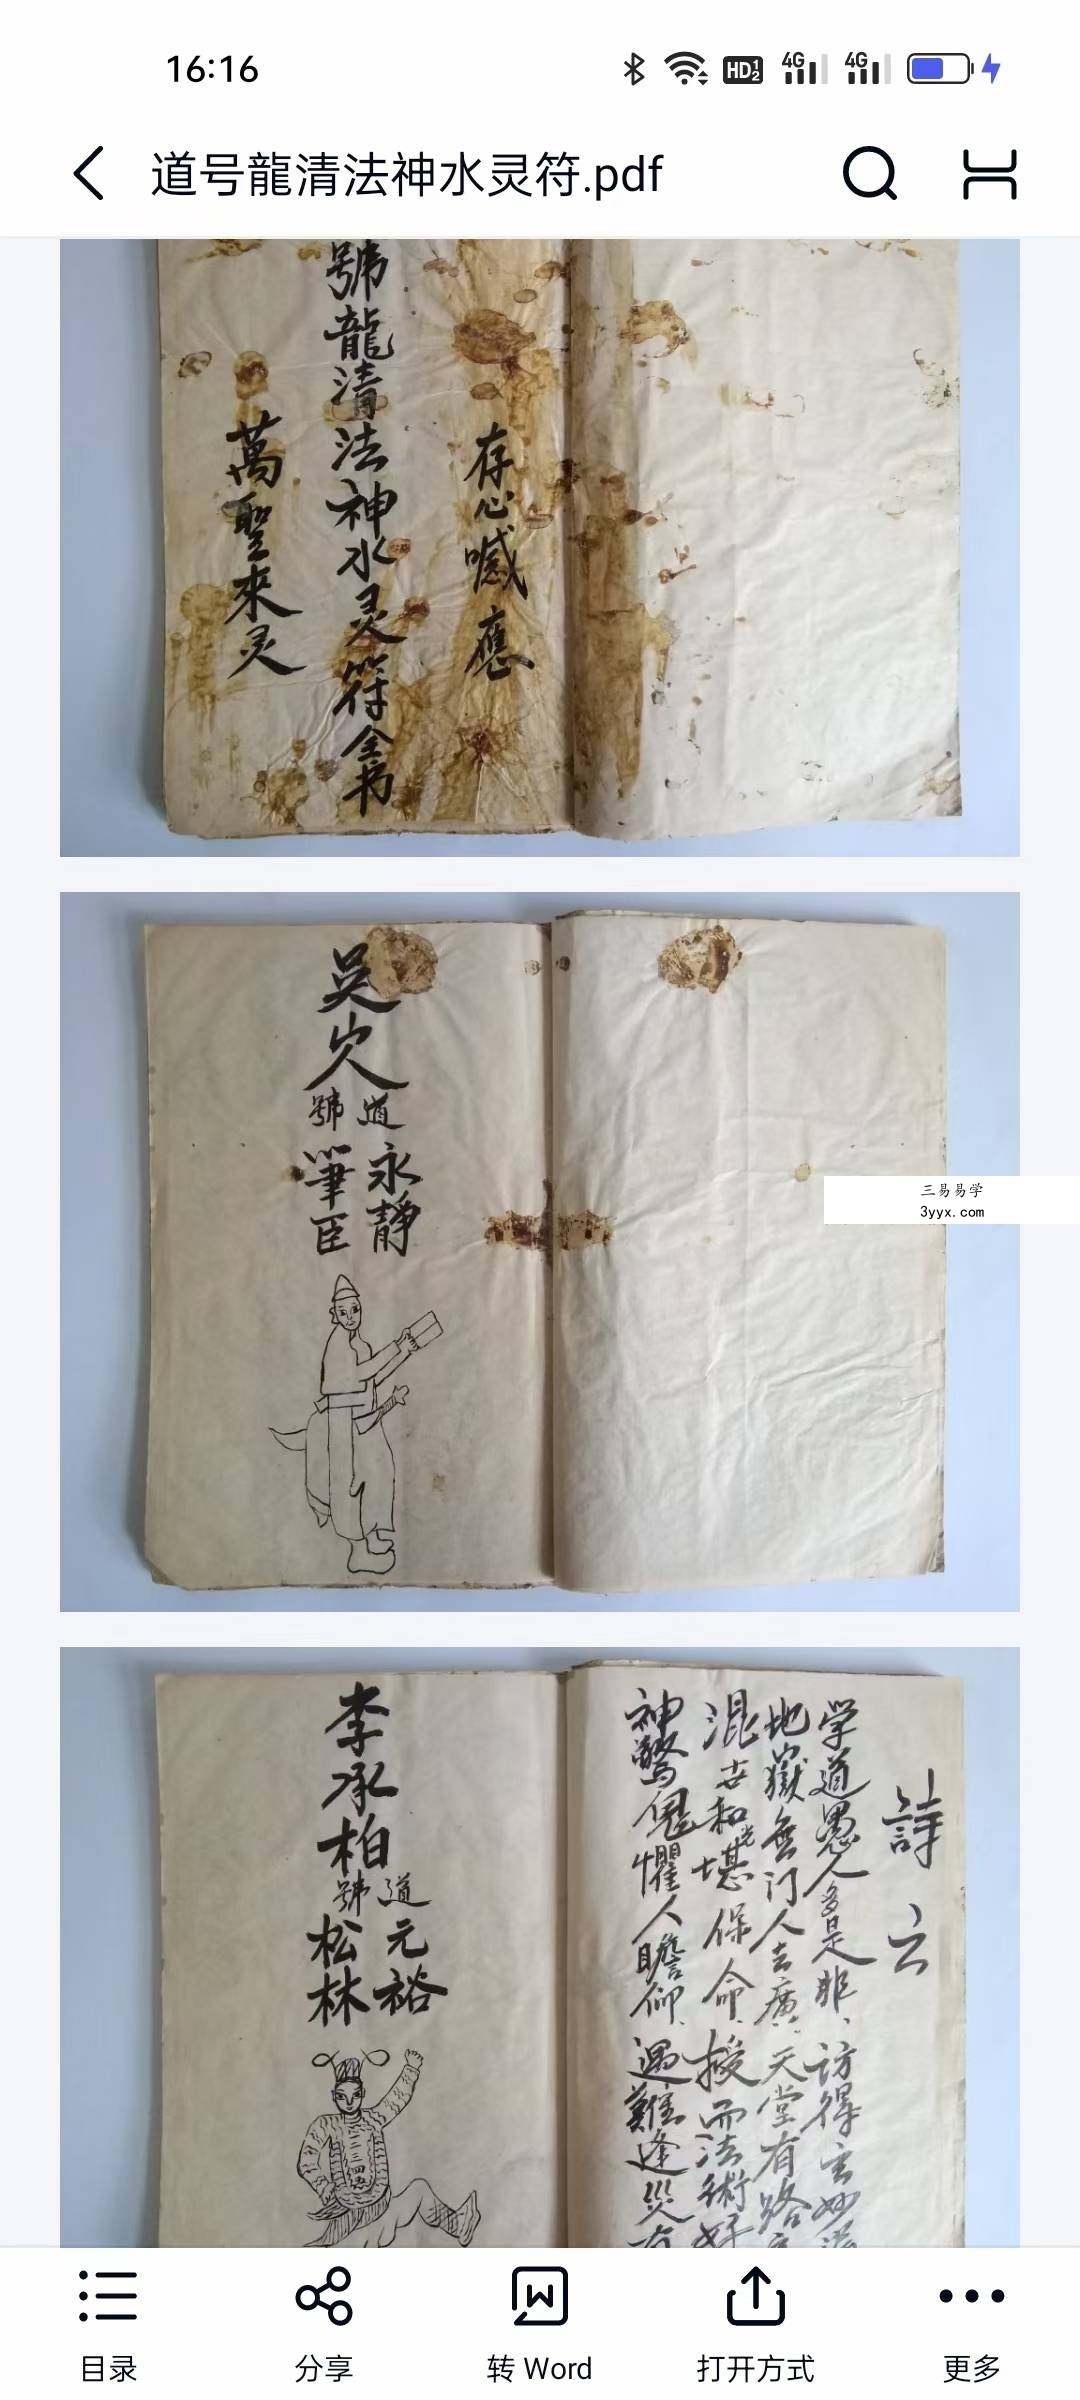 16:16
HD 1 2
4G
4G
道号龍清法神水灵符.pdf
存心喊應
號龍清法神水灵符全书
萬聖來灵
吴
道號
永靜
筆臣
三易易学
3yyx.com
詩云
学道愚人多是非、访得玄妙
地嶽無门人去廣、天堂有路
混世和光堪保命、授而法術好
神驚鬼懼人瞻仰、遇難逢災有
李承柏
道號
元裕
松林
目录
分享
转 Word
打开方式
更多